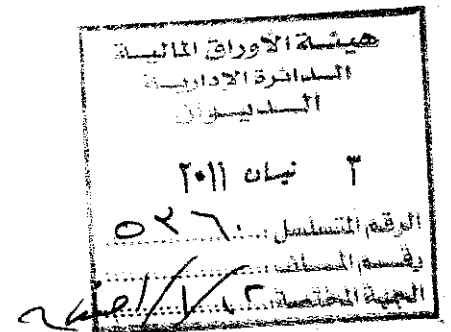 هيئة الأوراق المالية
الدائرة الإدارية
الديوان
٣ نيسان ٢٠١١
الرقم المتسلسل
رقم الملف
الجهة المختصة